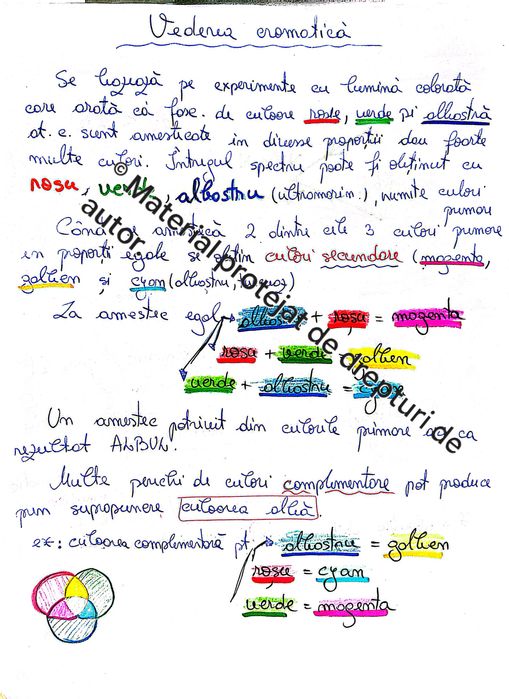 Vederea cromatică
Se bazează pe experimente cu lumină colorată
care arată că fasc. de culoare roșie, verde și albastră
at. c. sunt amestecate în diverse proporții dau foarte
multe culori. Întregul spectru poate fi obținut cu
roșu, verde, albastru (ultramarin), numite culori
primare
Când se amestecă 2 dintre cele 3 culori primare
în proporții egale se obțin culori secundare (magenta,
galben și cyan (albastru,
La amestec egal albastru + roșu = magenta
roșu + verde galben
verde + albastru = cyan
Un amestec potrivit din culorile primare are ca
rezultat ALBUL.
Multe perechi de culori complementare pot produce
prin suprapunere culoarea albă.
ex: culoarea complementară pt. albastru = galben
roșu = cyan
verde = magenta
© Material protejat de drepturi de
autor